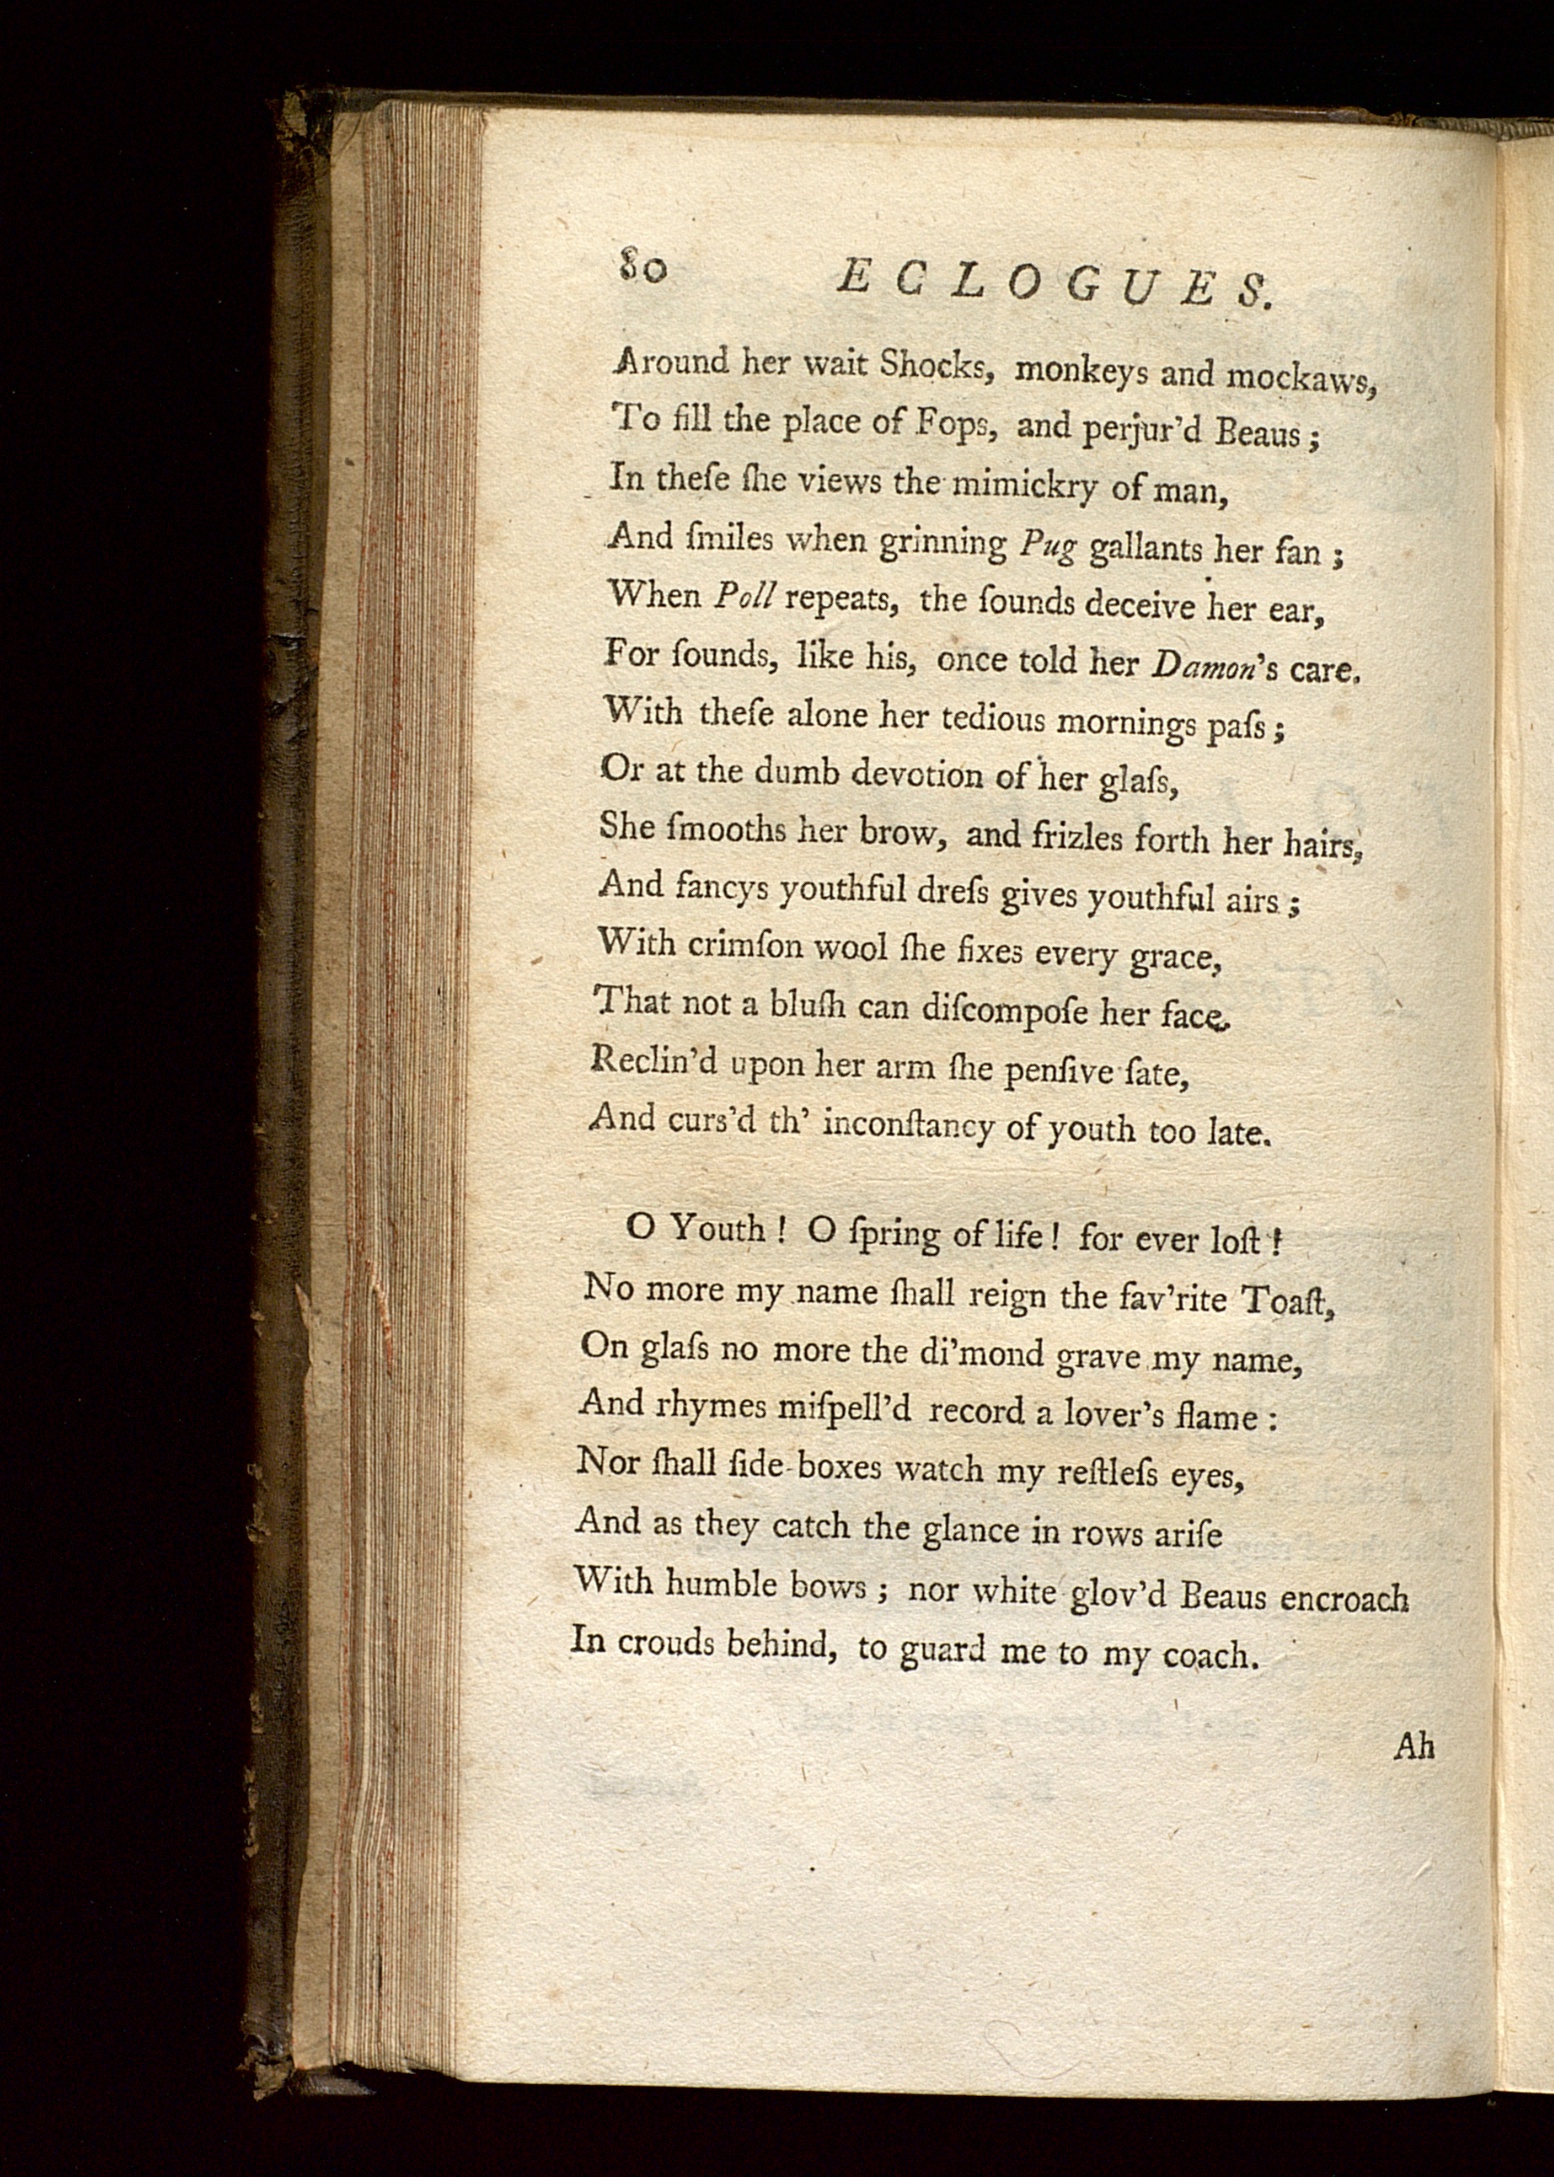 80 ECLOGUES.
Around her wait Shocks, monkeys and mockaws,
To fill the place of Fops, and perjur'd Beaus;
In theſe ſhe views the mimickry of man,
And ſmiles when grinning Pug gallants her fan;
When Poll repeats, the ſounds deceive her ear,
For ſounds, like his, once told her Damon's care.
With theſe alone her tedious mornings paſs;
Or at the dumb devotion of her glaſs,
She ſmooths her brow, and frizles forth her hairs,
And fancys youthful dreſs gives youthful airs;
With crimſon wool ſhe fixes every grace,
That not a bluſh can diſcompoſe her face.
Reclin'd upon her arm ſhe penſive ſate,
And curs'd th' inconſtancy of youth too late.
O Youth! O ſpring of life! for ever loſt!
No more my name ſhall reign the fav'rite Toaſt,
On glaſs no more the di'mond grave my name,
And rhymes miſpell'd record a lover's flame:
Nor ſhall ſide-boxes watch my reſtleſs eyes,
And as they catch the glance in rows ariſe
With humble bows; nor white glov'd Beaus encroach
In crouds behind, to guard me to my coach.
Ah